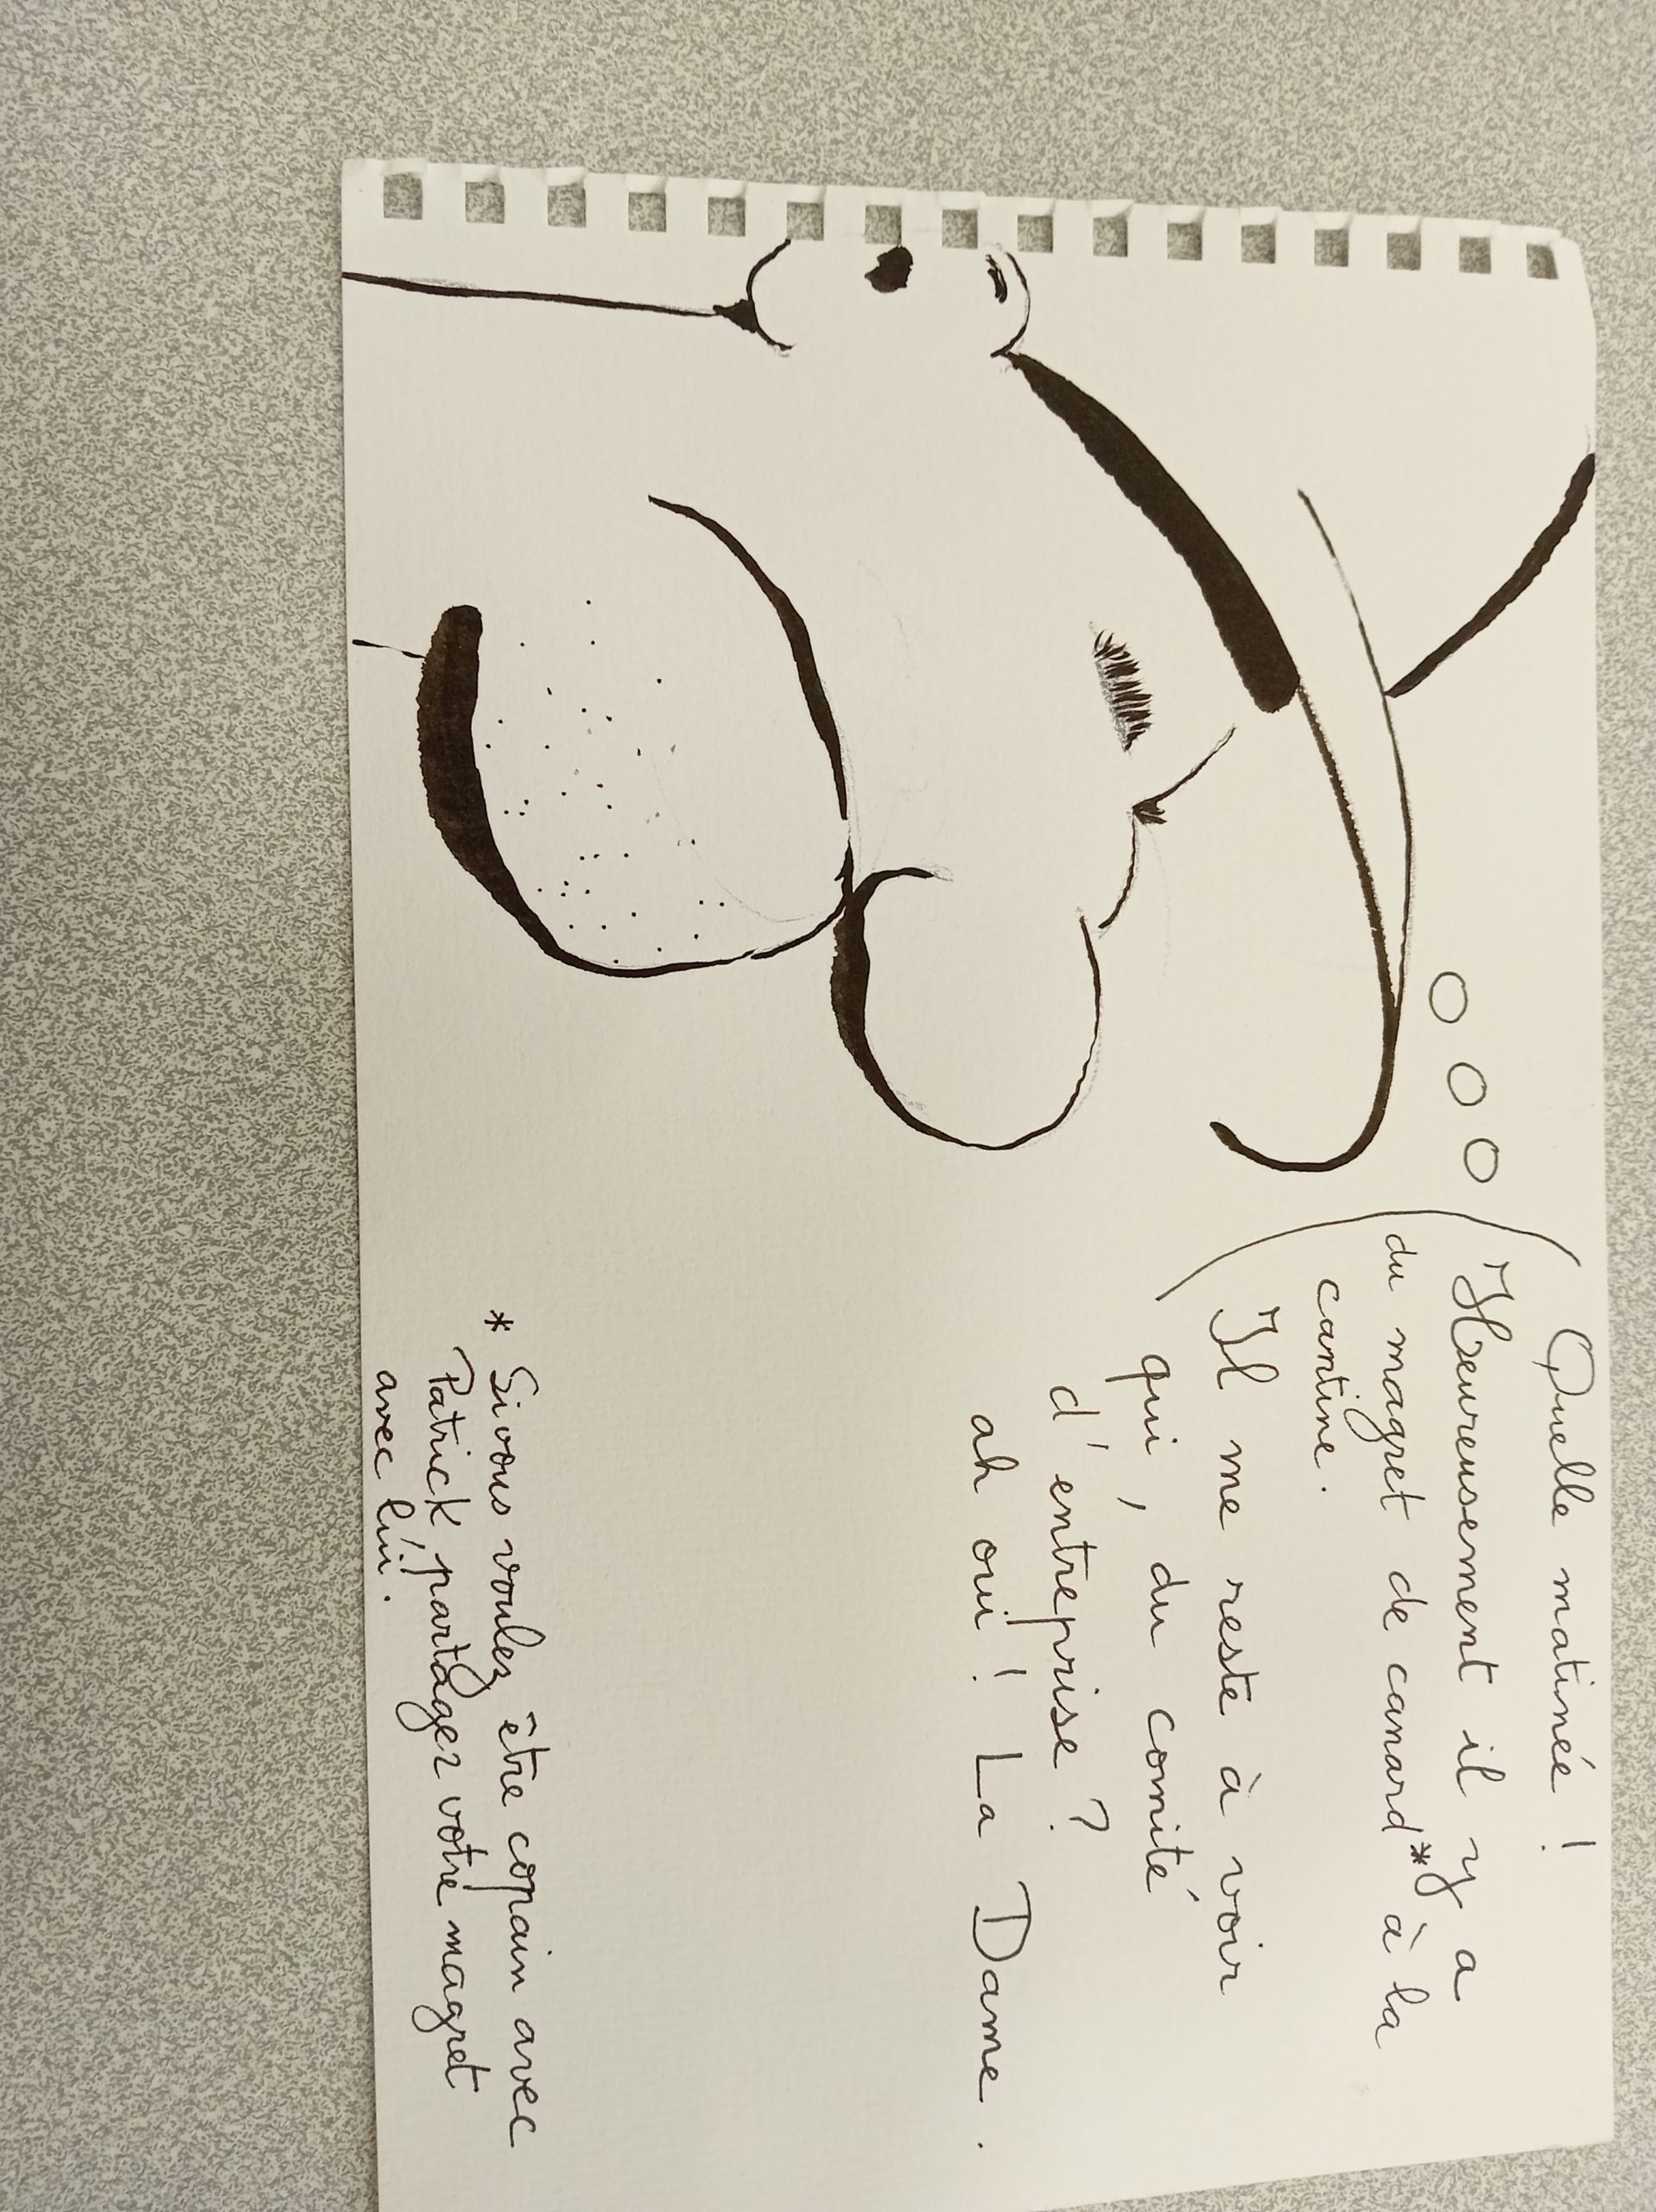 Quelle matinée !
Heureusement il y a
du magret de canard* à la
cantine.
Il me reste à voir
qui, du comité
d'entreprise ?
ah oui ! La Dame.
* Si vous voulez être copain avec
Patrick, partagez votre magret
avec lui.